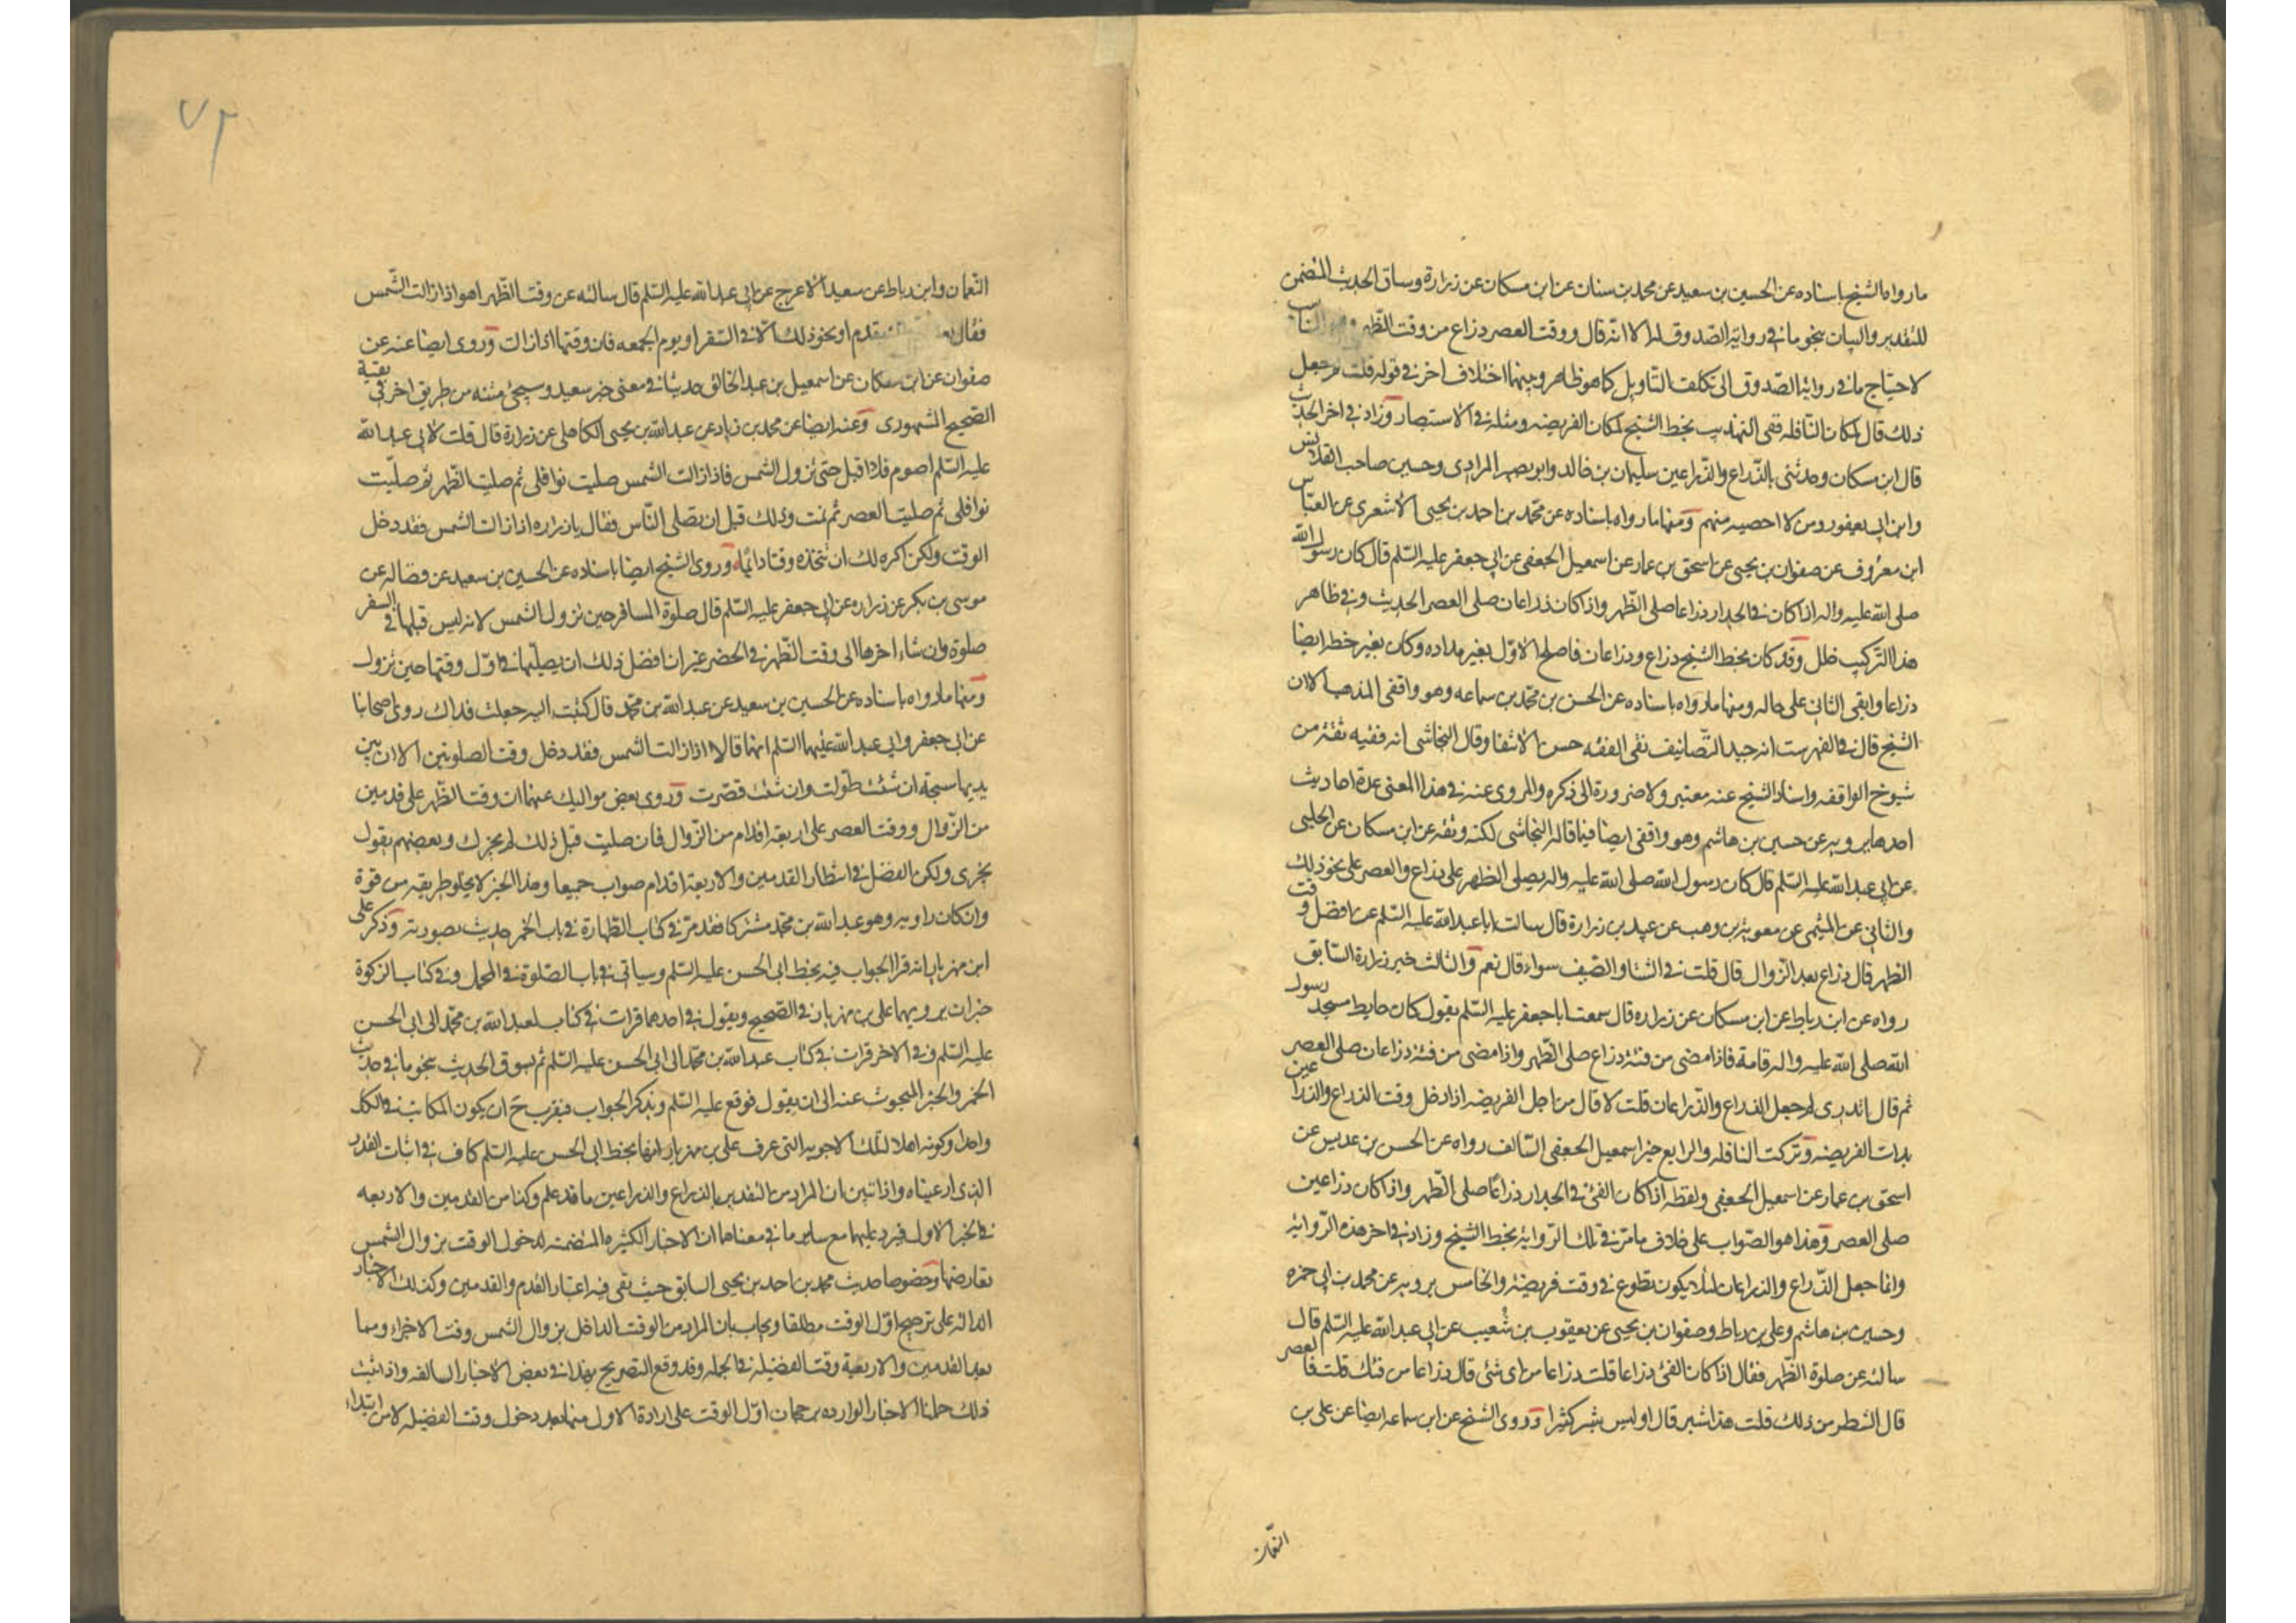 ما رواه الشيخ باسناده عن الحسين بن سعيد عن محمد بن سنان عن ابن مسكان عن زرارة وساق الحديث المتضمن
للتقدير والبيان بنحو ما في رواية الصدوق له الا انه قال ووقت العصر ذراع من وقت الظهر وهو المناسب
لاحتياج ما في رواية الصدوق الى تكلف التاويل كما هو ظاهر وبينهما اختلاف اخر في قوله قلت لم جعل
ذلك قال لمكان النافله ففي التهذيب بخط الشيخ لمكان الفريضه ومثله في الاستبصار وزاد في اخر الحديث
قال ابن مسكان وحدثني بالذراع والذراعين سليمان بن خالد وابو بصير المرادي وحسين صاحب القلانس
وابن ابي يعفور ومن لا احصيه منهم ومنها ما رواه باسناده عن محمد بن احمد بن يحيى الاشعري عن العباس
ابن معروف عن صفوان بن يحيى عن اسحق بن عمار عن اسمعيل الجعفي عن ابي جعفر عليه السلم قال كان رسول الله
صلى الله عليه واله اذا كان في الجدار ذراعا صلى الظهر واذا كان ذراعان صلى العصر الحديث وفي ظاهر
هذا التركيب خلل وقد كان بخط الشيخ ذراع وذراعان فاصلح الاول بغير مداده وكان بغير خطه ايضا
ذراعا وابقى الثاني على حاله ومنها ما رواه باسناده عن الحسن بن محمد بن سماعه وهو واقفي المذهب الا ان
الشيخ قال في الفهرست انه جيد التصانيف نقي الفقه حسن الانتقا وقال النجاشي انه فقيه ثقة من
شيوخ الواقفه واسناد الشيخ عنه معتبر ولا ضرورة الى ذكره والمروى عنه في هذا المعنى عدة احاديث
احدها يرويه عن حسين بن هاشم وهو واقفي ايضا فيما قاله النجاشي لكنه وثقه عن ابن مسكان عن الحلبي
عن ابي عبدالله عليه السلم قال كان رسول الله صلى الله عليه واله يصلي الظهر على ذراع والعصر على نحو ذلك
والثاني عن الميثمي عن معوية بن وهب عن عبيد بن زرارة قال سالت ابا عبدالله عليه السلم عن افضل وقت
الظهر قال ذراع بعد الزوال قال قلت في الشتا والصيف سواء قال نعم والثالث خبر زرارة السابق
رواه عن ابن رباط عن ابن مسكان عن زراره قال سمعت ابا جعفر عليه السلم يقول كان حايط مسجد رسول
الله صلى الله عليه واله قامة فاذا مضى من فيئه ذراع صلى الظهر واذا مضى من فيئه ذراعان صلى العصر
ثم قال اتدري لم جعل الذراع والذراعان قلت لا قال من اجل الفريضه اذا دخل وقت الذراع والذراعين
بدات الفريضه وتركت النافله والرابع خبر اسمعيل الجعفي السالف رواه عن الحسن بن عديس عن
اسحق بن عمار عن اسمعيل الجعفي ولفظه اذا كان الفئ في الجدار ذراعا صلى الظهر واذا كان ذراعين
صلى العصر وهذا هو الصواب على خلاف ما مر في تلك الرواية بخط الشيخ وزاد في اخر هذه الرواية
وانما جعل الذراع والذراعان لئلا يكون تطوع في وقت فريضة والخامس يرويه عن محمد بن ابي حمزه
وحسين بن هاشم وعلي بن رباط وصفوان بن يحيى عن يعقوب بن شعيب عن ابي عبدالله عليه السلم قال
سالته عن صلوة الظهر فقال اذا كان الفئ ذراعا قلت ذراعا من اى شئ قال ذراعا من فيئك قلت فالعصر
قال الشطر من ذلك قلت هذا شبر قال او ليس شبر كثيرا وروى الشيخ عن ابن سماعه ايضا عن علي بن
النعمان
٧٢
النعمان وابن رباط عن سعيد الاعرج عن ابي عبدالله عليه السلم قال سالته عن وقت الظهر اهو اذا زالت الشمس
فقال بعد الزوال بقدم او نحو ذلك الا في السفر او يوم الجمعه فان وقتها اذا زالت وروى ايضا عنه عن
صفوان عن ابن مسكان عن اسمعيل بن عبد الخالق حديثا في معنى خبر سعيد وسيجئ متنه من طريق اخر في بقية
الصحيح المشهورى وعنه ايضا عن محمد بن زياد عن عبدالله بن يحيى الكاهلي عن زرارة قال قلت لابي عبدالله
عليه السلم اصوم فلا اقيل حتى تزول الشمس فاذا زالت الشمس صليت نوافلي ثم صليت الظهر ثم صليت
نوافلي ثم صليت العصر ثم نمت وذلك قبل ان يصلي الناس فقال يا زراره اذا زالت الشمس فقد دخل
الوقت ولكن اكره لك ان تتخذه وقتا دائما وروى الشيخ ايضا باسناده عن الحسين بن سعيد عن فضاله عن
موسى بن بكر عن زراره عن ابي جعفر عليه السلم قال صلوة المسافر حين تزول الشمس لانه ليس قبلها في السفر
صلوة وان شاء اخرها الى وقت الظهر في الحضر غير ان افضل ذلك ان يصليها في اول وقتها حين تزول
ومنها ما رواه باسناده عن الحسين بن سعيد عن عبدالله بن محمد قال كتبت اليه جعلت فداك روى اصحابنا
عن ابي جعفر وابي عبدالله عليهما السلم انهما قالا اذا زالت الشمس فقد دخل وقت الصلوتين الا ان بين
يديها سبحة ان شئت طولت وان شئت قصرت وروى بعض مواليك عنهما ان وقت الظهر على قدمين
من الزوال ووقت العصر على اربعة اقدام من الزوال فان صليت قبل ذلك لم يجزك وبعضهم يقول
يجزى ولكن الفضل في انتظار القدمين والاربعة اقدام صواب جميعا وهذا الخبر لا يخلو طريقه من قوة
وان كان راويه وهو عبدالله بن محمد مشتركا فقد مر في كتاب الطهارة في باب الخمر حديث بصورته وذكر على
ابن مهزيار انه قرا الجواب فيه بخط ابي الحسن عليه السلم وسياتي في باب الصلوة في المحمل وفي كتاب الزكوة
خبران يرويهما على بن مهزيار في الصحيح ويقول في احدهما قرات في كتاب لعبدالله بن محمد الى ابي الحسن
عليه السلم وفي الاخر قرات في كتاب عبدالله بن محمد الى ابي الحسن عليه السلم ثم يسوق الحديث بنحو ما في حديث
الخمر والخبر المبحوث عنه الى ان يقول فوقع عليه السلم ويذكر الجواب فيقرب ح ان يكون المكاتب في الكل
واحدا وكونه اهلا لتلك الاجوبه التي عرف على بن مهزيار انها بخط ابي الحسن عليه السلم كاف في اثبات القدر
الذى ادعيناه واذا تبين ان المراد من التقدير بالذراع والذراعين ما قد علم وكذا من القدمين والاربعه
في الخبر الاول فيرد عليها مع ساير ما في معناها ان الاخبار الكثيره المتضمنه لدخول الوقت بزوال الشمس
تعارضها وخصوصا حديث محمد بن احمد بن يحيى السابق حيث نفى فيه اعتبار القدم والقدمين وكذلك الاخبار
الداله على ترجيح اول الوقت مطلقا ويجاب بان المراد من الوقت الداخل بزوال الشمس وقت الاجزاء وبما
بعد القدمين والاربعة وقت الفضيله في الجمله وقد وقع التصريح بهذا في بعض الاخبار السالفه واذا ثبت
ذلك حملنا الاخبار الوارده برجحان اول الوقت على ارادة الاول منها بعد دخول وقت الفضيله لا من ابتداء